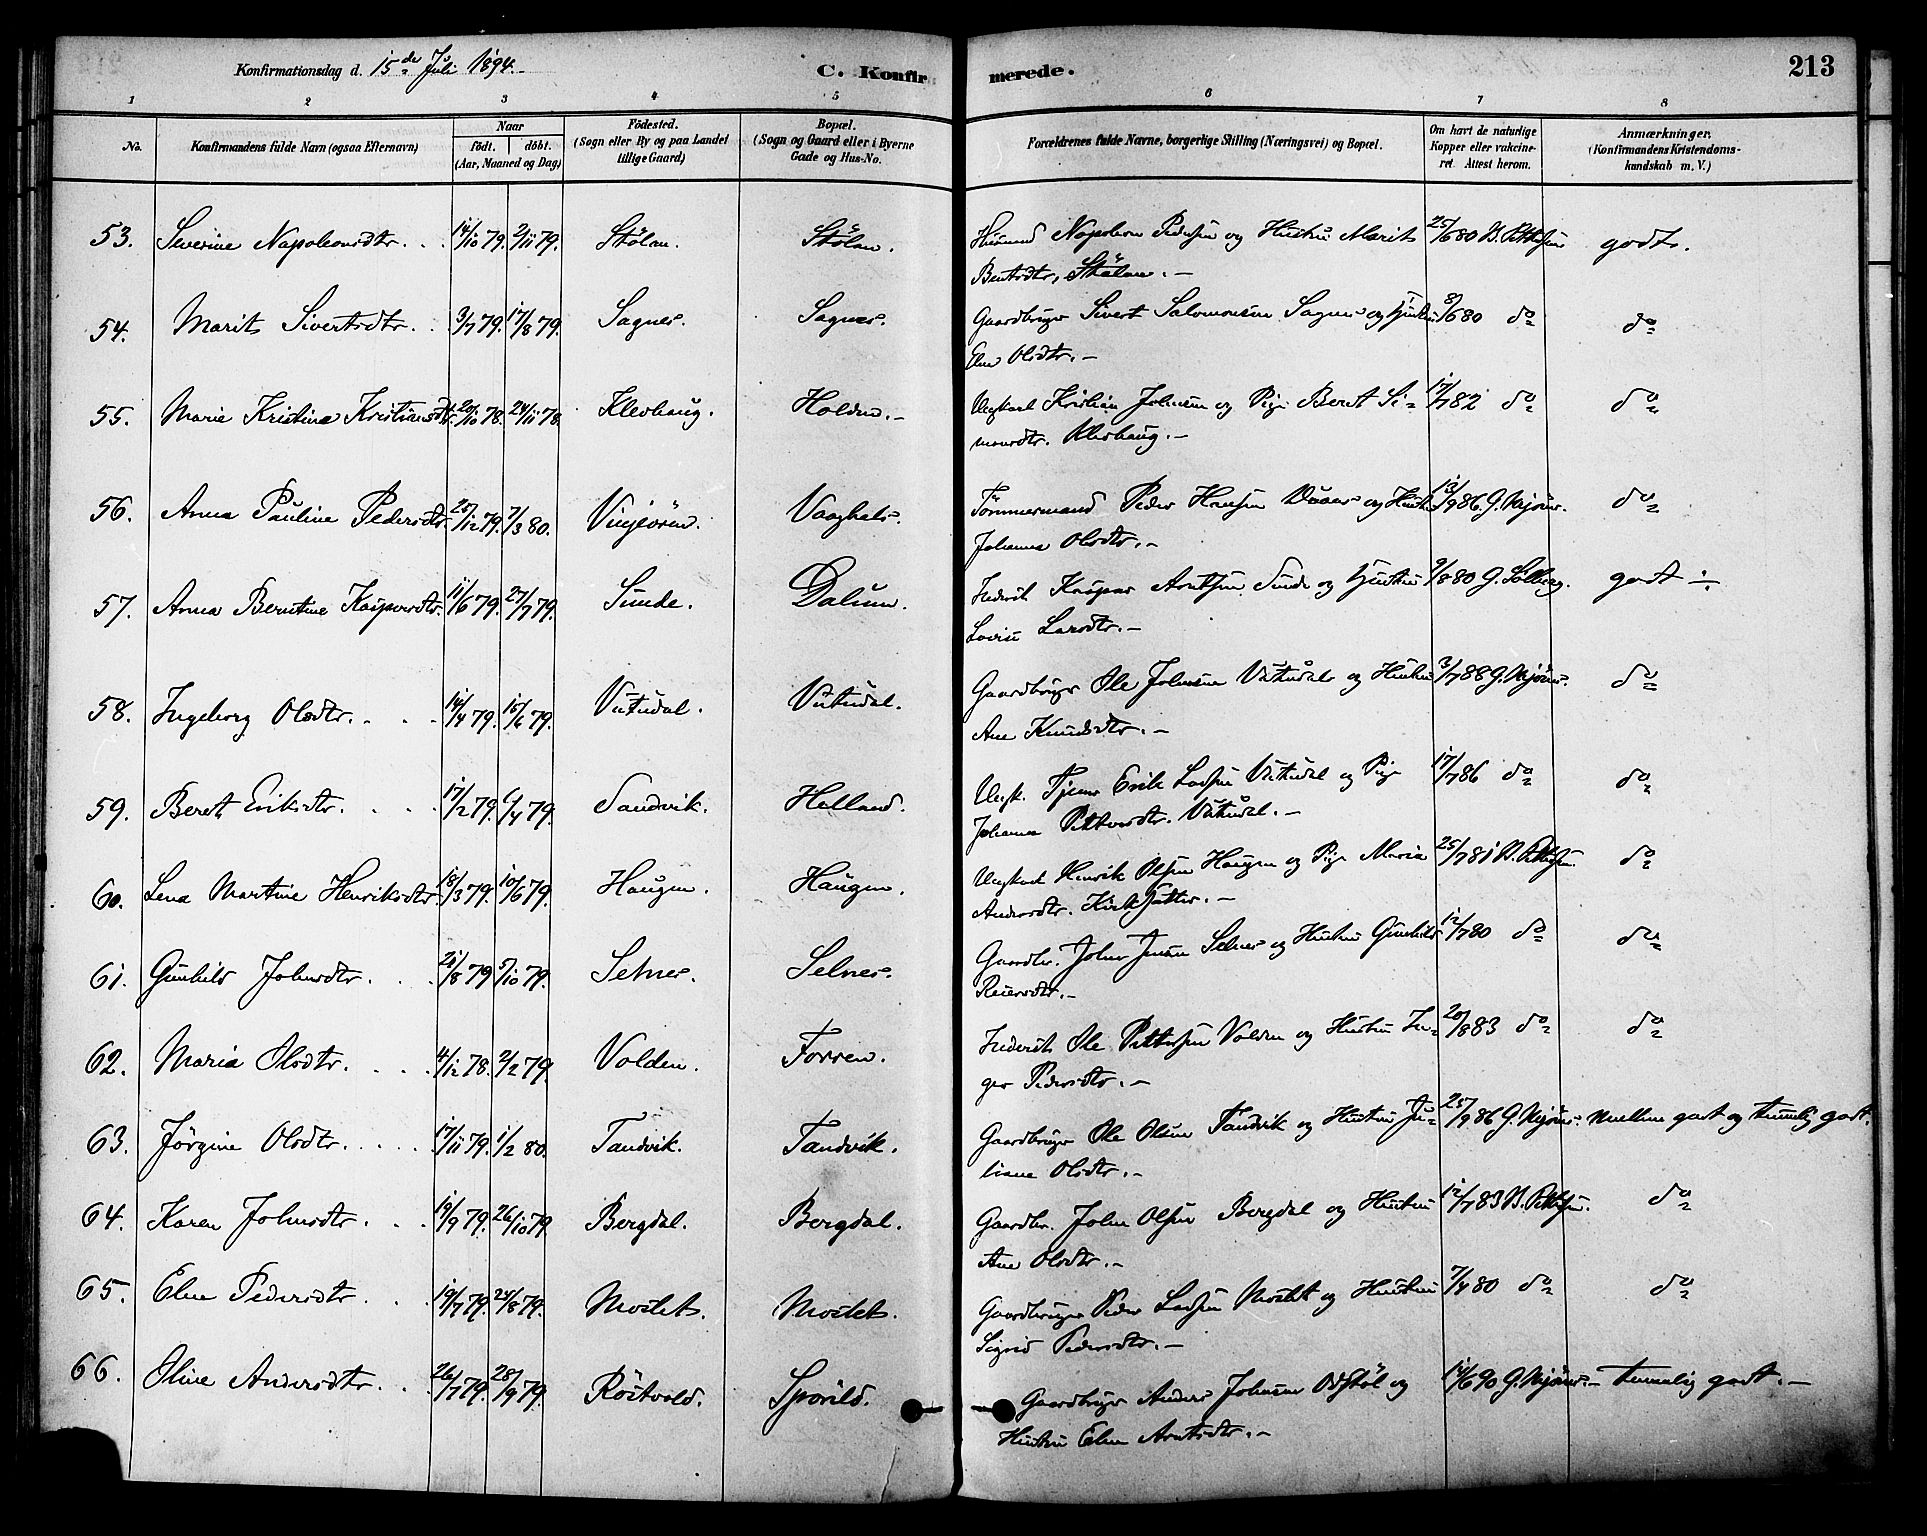 Konfirmationsdag d. 15de Juli 1894.
C. Konfirmerede.
213
1 2 3 4 5 6 7 8
No.
Konfirmandens fulde Navn (ogsaa Efternavn)
Naar
født. døbt.
(Aar, Maaned og Dag)
Fødested.
(Sogn eller By og paa Landet
tillige Gaard)
Bopæl.
(Sogn og Gaard eller i Byerne
Gade og Hus-No.
Forældrenes fulde Navne, borgerlige Stilling (Næringsvei) og Bopæl.
Om havt de naturlige
Kopper eller vakcine-
ret. Attest herom.
Anmærkninger.
(Konfirmandens Kristendoms-
kundskab m. V.)
53. Severine Napoleonsdtr. 14/10 79. 2/11 79. Stölan. Stölan. Husmand Napoleon Pedersen og Hustru Marit 25/6 80 B. Pettersen godt.
Bentsdtr, Stölan.
54. Marit Sivertsdtr. 3/7 79. 17/8 79. Sagnes. Sagnes. Gaardbruger Sivert Salomonsen Sagnes og Hustru 8/6 80 do do
Elen Olsdtr.
55. Marie Kristine Kristiansdtr. 20/10 78. 24/11 78. Klevhaug. Holden. Ungkarl Kristian Johnsen og Pige Beret Si-
17/7 82 do do
monsdtr. Klevhaug.
56. Anna Pauline Pedersdtr 25/12 79. 7/3 80. Vinjeören. Vaaghals. Tömmermand Peder Hansen og Hustru 13/9 86. do
Johanna Olsdtr.
57. Anna Berntine Kaspersdtr. 11/6 79. 27/7 79. Sunde. Dalum. Inderst Kasper Arntsen Sunde og Hustru 9/8 80 G. Solberg. godt
Lovise Larsdtr.
58. Ingeborg Olsdtr. 14/4 79. 15/6 79. Vutudal. Vutudal. Gaardbruger Ole Johnsen Vutudal og Hustru 3/7 88 do
Ane Knudsdtr.
59. Beret Eriksdtr. 17/2 79. 6/4 79. Sandvik. Helland. Ungk. Tjener Erik Larsen Vutudal og Pige 17/7 86 do do
Johanna Pettersdtr. Vutudal.
60. Lena Martine Henriksdtr. 18/3 79. 10/6 79. Haugen. Haugen. Ungkarl Henrik Olsen Haugen og Pige Maria 25/7 81 B. Pettersen. do
Andersdtr. Kirksætter.
61. Gunhild Johnsdtr. 21/8 79 5/10 79. Selnes. Selnes. Gaardbr. John Jonsen Selnes og Hustru Gunhild 12/7 80 do do
Reiersdtr.
62. Maria Olsdtr. 4/12 78. 2/2 79. Volden. Forren. Inderst Ole Pettersen Volden og Hustru In-
20/8 83 do do
ger Pedersdtr.
63. Jörgine Olsdtr. 17/11 79. 1/2 80. Tandvik. Tandvik. Gaardbruger Ole Olsen Tandvik og Hustru Ju-
25/9 86 mellem godt og temmelig godt.
liane Olsdtr.
64. Karen Johnsdtr. 19/9 79. 26/10 79. Bergdal. Bergdal. Gaardbr. John Olsen Bergdal og Hustru 12/7 83 B. Pettersen. do
Ane Olsdtr.
65. Elen Pedersdtr. 19/7 79. 24/8 79. Mostet. Mostet. Gaardbruger Peder Larsen Mostet og Hustru 7/7 80 do do
Sigrid Pedersdtr.
66. Oline Andersdtr. 26/7 79. 28/9 79. Röstvold. Spovild. Gaardbruger Anders Johnsen og 14/6 90 temmelig godt.
Hustru Elen Arntsdtr.